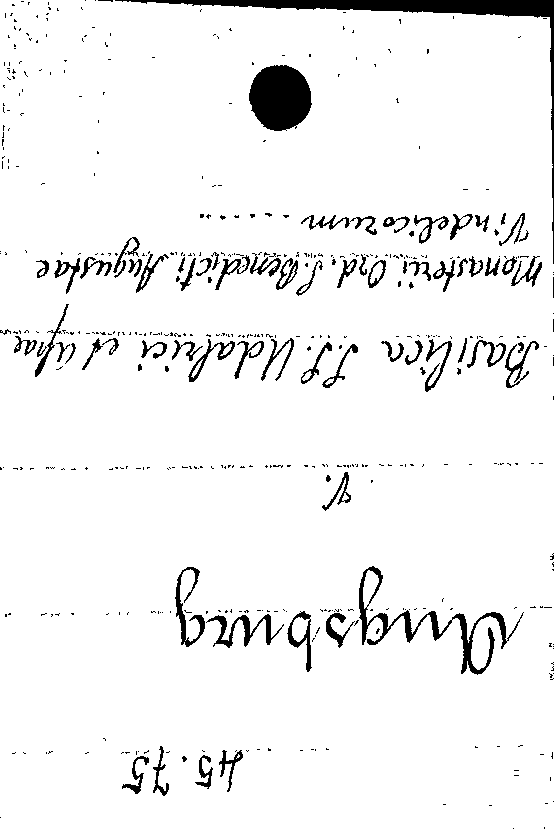 45.75
Augsburg
V.
Basilica S.S. Udalrici et Afrae
Monasterii Ord. S. Benedicti Augustae
Vindelicorum ......